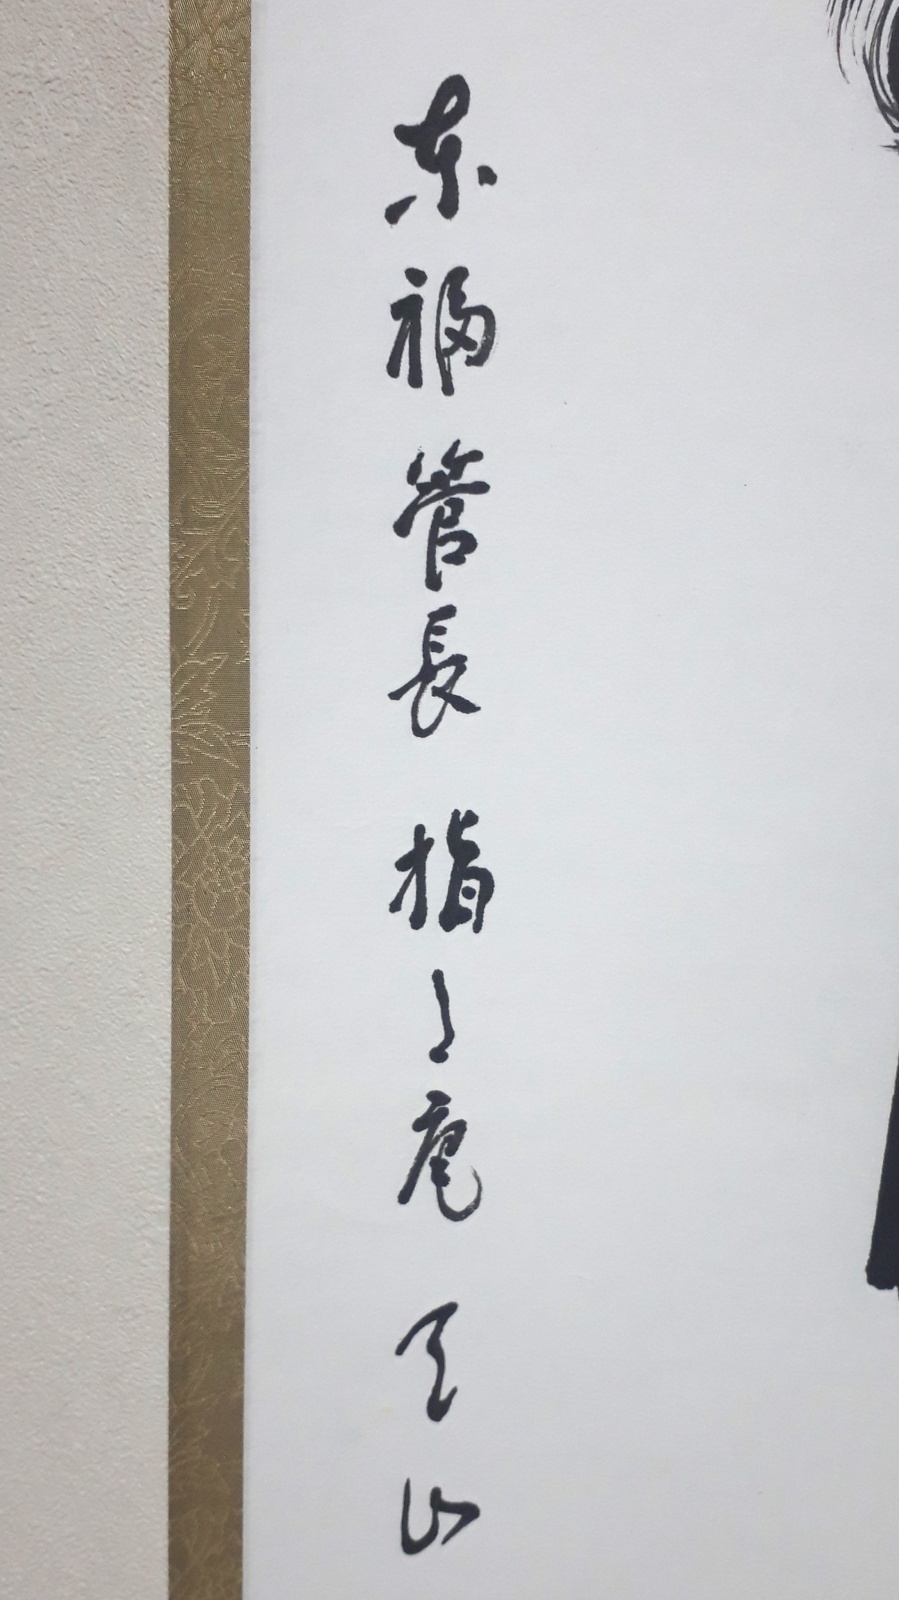 東福管長 指月庵 山